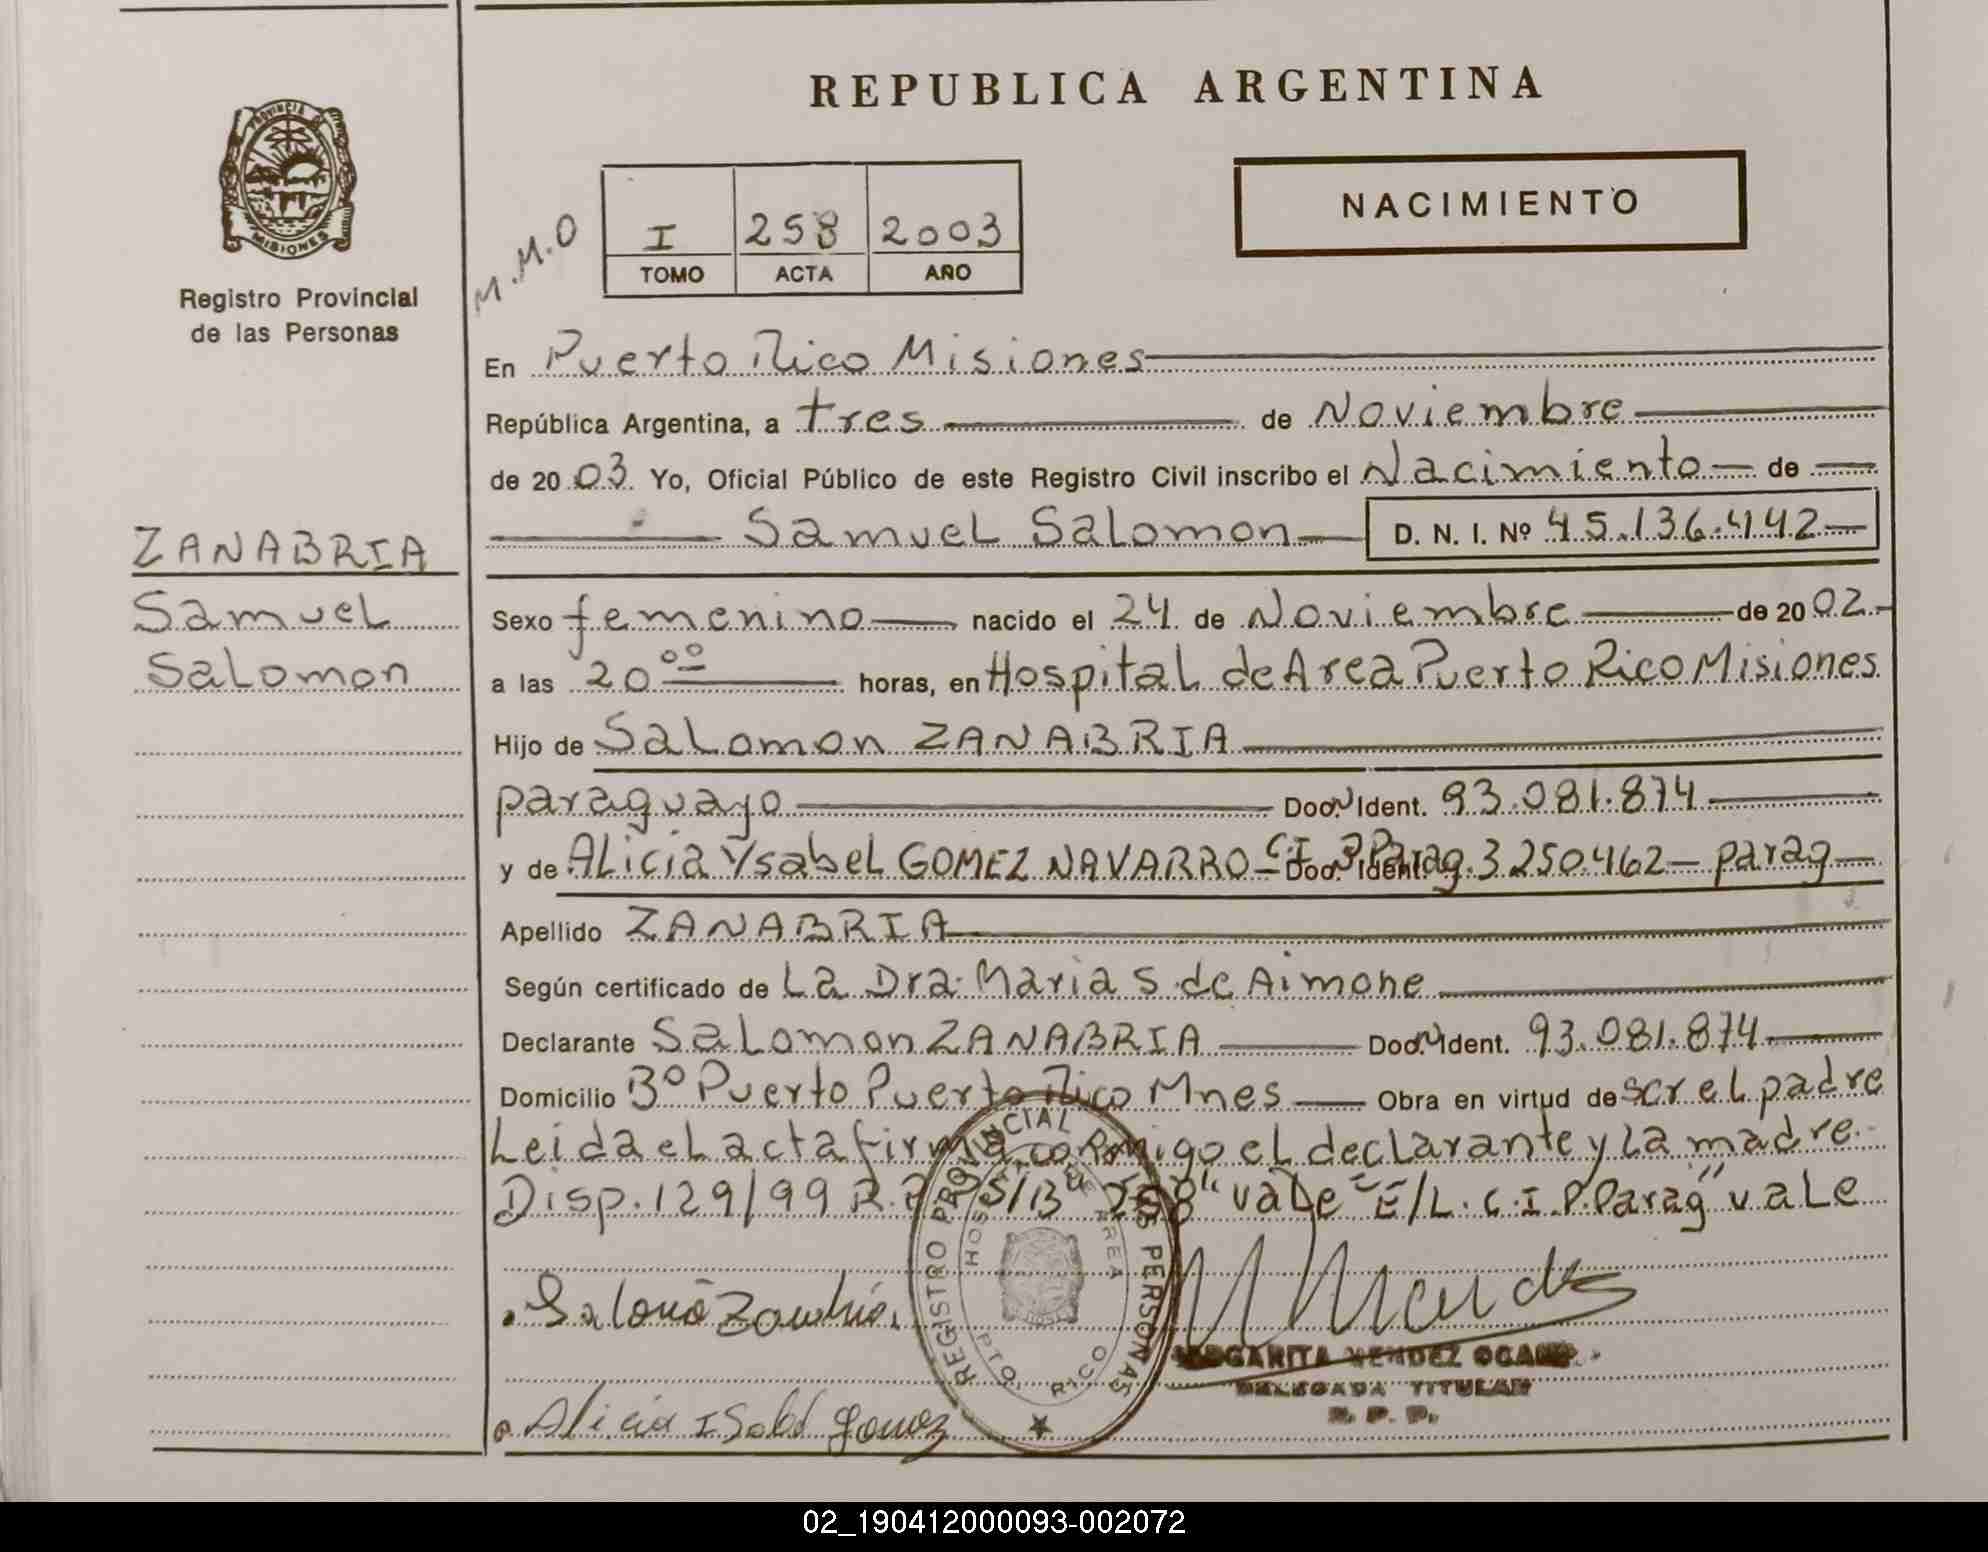 REPUBLICA ARGENTINA
PROVINCIA DE
MISIONES
Registro Provincial
de las Personas
M.M.O
I 258 2003
TOMO ACTA AÑO
NACIMIENTO
En Puerto Rico Misiones
República Argentina, a tres de Noviembre
de 20 03 Yo, Oficial Público de este Registro Civil inscribo el Nacimiento de
Samuel Salomon D. N. I. Nº 45.136.442
ZANABRIA
Samuel
Salomon
Sexo femenino nacido el 24 de Noviembre de 20 02
a las 20 00 horas, en Hospital de Area Puerto Rico Misiones
Hijo de Salomon ZANABRIA
paraguayo Doc. Ident. 93.081.874
y de Alicia Ysabel GOMEZ NAVARRO C.I. P. Parag. Doc. Ident. 3.250.462 parag
Apellido ZANABRIA
Según certificado de La Dra. Maria S. de Aimone
Declarante Salomon ZANABRIA Doc. Ident. 93.081.874
Domicilio Bº Puerto Puerto Rico Mnes Obra en virtud de scr el padre
Leida el acta firma conmigo el declarante y la madre.
Disp. 129/99 R.P. S/B "258" vale E/L. C.I.P.Parag" vale
REGISTRO PROVINCIAL DE LAS PERSONAS
HOSPITAL DE AREA
PTO. RICO
MARGARITA MENDEZ OCAMPO
DELEGADA TITULAR
R. P. P.
Alicia Isabel Gomez
02_190412000093-002072